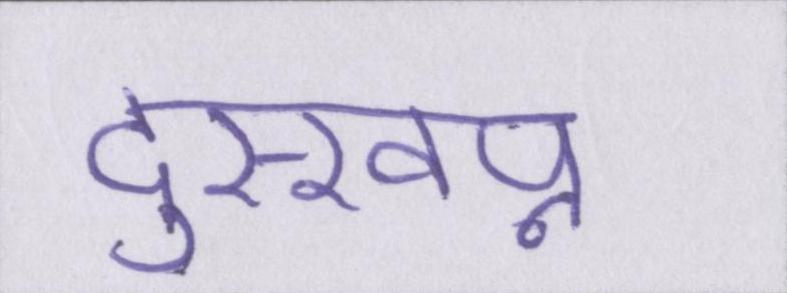 दुस्स्वप्न